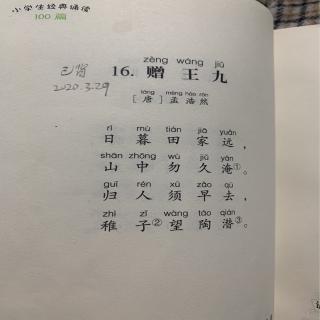 小学生经典诵读
100篇
已背
2020.3.29
zèng wáng jiǔ
16. 赠 王 九
táng mèng hào rán
[唐] 孟 浩 然
rì mù tián jiā yuǎn
日 暮 田 家 远，
shān zhōng wù jiǔ yān
山 中 勿 久 淹①。
guī rén xū zǎo qù
归 人 须 早 去，
zhì zǐ wàng táo qián
稚 子② 望 陶 潜③。